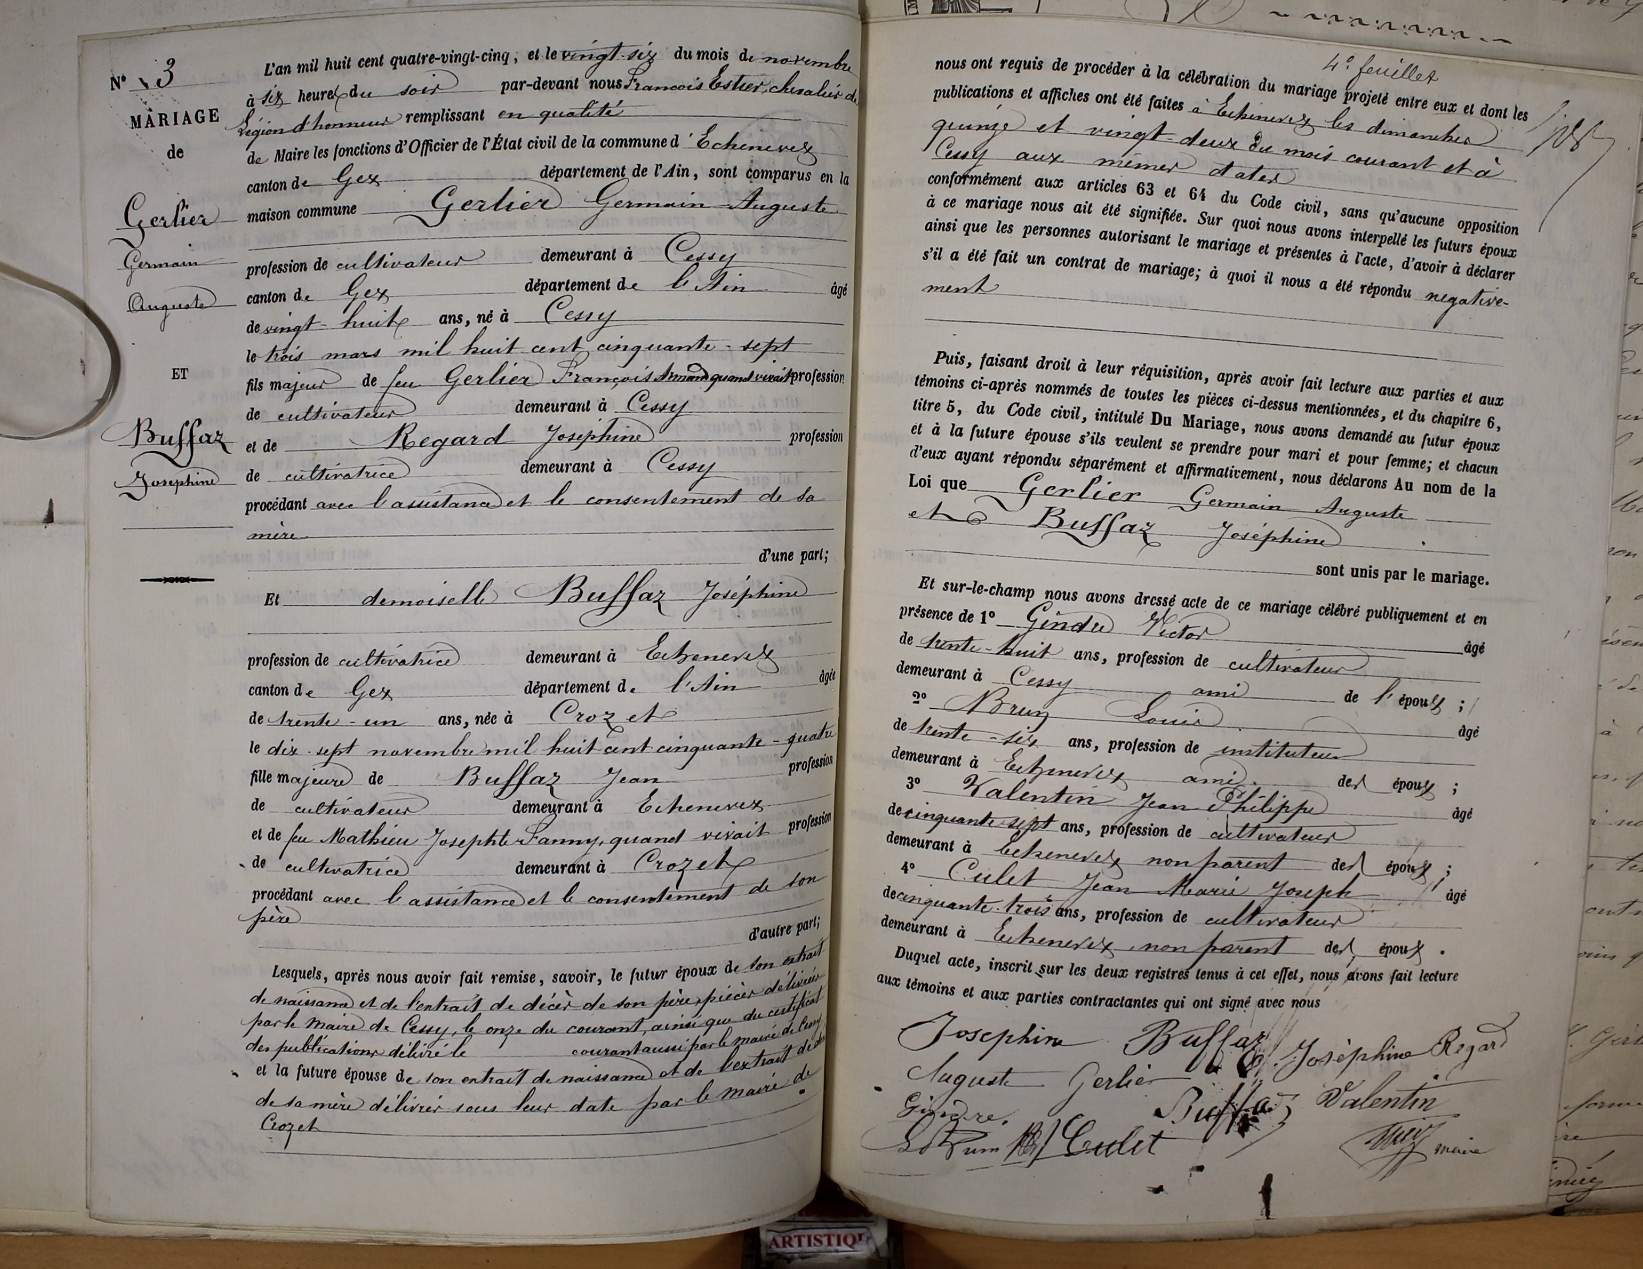 N° 3
MARIAGE
de
Gerlier
Germain
Auguste
ET
Buffaz
Joséphine
L'an mil huit cent quatre-vingt-cinq, et le vingt-six du mois de novembre
à six heures du soir par-devant nous François Estier, chevalier de
Légion d'honneur remplissant en qualité
de Maire les fonctions d'Officier de l'État civil de la commune d'Echenevex
canton de Gex département de l'Ain, sont comparus en la
maison commune Gerlier Germain-Auguste
profession de cultivateur demeurant à Cessy
canton de Gex département de l'Ain âgé
de vingt-huit ans, né à Cessy
le trois mars mil huit cent cinquante-sept
fils majeur de feu Gerlier François Armand quand vivait profession
de cultivateur demeurant à Cessy
et de Regard Joséphine profession
de cultivatrice demeurant à Cessy
procédant avec l'assistance et le consentement de sa
mère
d'une part;
Et demoiselle Buffaz Joséphine
profession de cultivatrice demeurant à Echenevex
canton de Gex département de l'Ain âgée
de trente-un ans, née à Crozet
le dix-sept novembre mil huit cent cinquante-quatre
fille majeure de Buffaz Jean profession
de cultivateur demeurant à Echenevex
et de feu Mathieu Josephte Fanny, quand vivait profession
de cultivatrice demeurant à Crozet
procédant avec l'assistance et le consentement de son
père
d'autre part;
Lesquels, après nous avoir fait remise, savoir, le futur époux de son extrait
de naissance et de l'extrait de décès de son père, pièces délivrées
par le maire de Cessy, le onze du courant, ainsi que du certificat
des publications délivré le courant aussi par le maire de Cessy
et la future épouse de son extrait de naissance et de l'extrait de décès
de sa mère délivrés sous leur date par le maire de
Crozet
4e feuillet
nous ont requis de procéder à la célébration du mariage projeté entre eux et dont les
publications et affiches ont été faites à Echenevex les dimanches
quinze et vingt-deux du mois courant et à
Cessy aux mêmes dates
conformément aux articles 63 et 64 du Code civil, sans qu'aucune opposition
à ce mariage nous ait été signifiée. Sur quoi nous avons interpellé les futurs époux
ainsi que les personnes autorisant le mariage et présentes à l'acte, d'avoir à déclarer
s'il a été fait un contrat de mariage; à quoi il nous a été répondu négative-
ment
Puis, faisant droit à leur réquisition, après avoir fait lecture aux parties et aux
témoins ci-après nommés de toutes les pièces ci-dessus mentionnées, et du chapitre 6,
titre 5, du Code civil, intitulé Du Mariage, nous avons demandé au futur époux
et à la future épouse s'ils veulent se prendre pour mari et pour femme; et chacun
d'eux ayant répondu séparément et affirmativement, nous déclarons Au nom de la
Loi que Gerlier Germain Auguste
et Buffaz Joséphine
sont unis par le mariage.
Et sur-le-champ nous avons dressé acte de ce mariage célébré publiquement et en
présence de 1° Gindre Victor âgé
de trente-huit ans, profession de cultivateur
demeurant à Cessy ami de l'époux ;
2° Brun Louis âgé
de trente-six ans, profession de instituteur
demeurant à Echenevex ami des époux ;
3° Valentin Jean Philippe âgé
de cinquante-sept ans, profession de cultivateur
demeurant à Echenevex non parent des époux ;
4° Culet Jean Marie Joseph âgé
de cinquante-trois ans, profession de cultivateur
demeurant à Echenevex non parent des époux .
Duquel acte, inscrit sur les deux registres tenus à cet effet, nous avons fait lecture
aux témoins et aux parties contractantes qui ont signé avec nous
Josephine Buffaz Joséphine Regard
Auguste Gerlier Buffaz Valentin
Gindre
Ls Brun Culet maire
ARTISTIQ